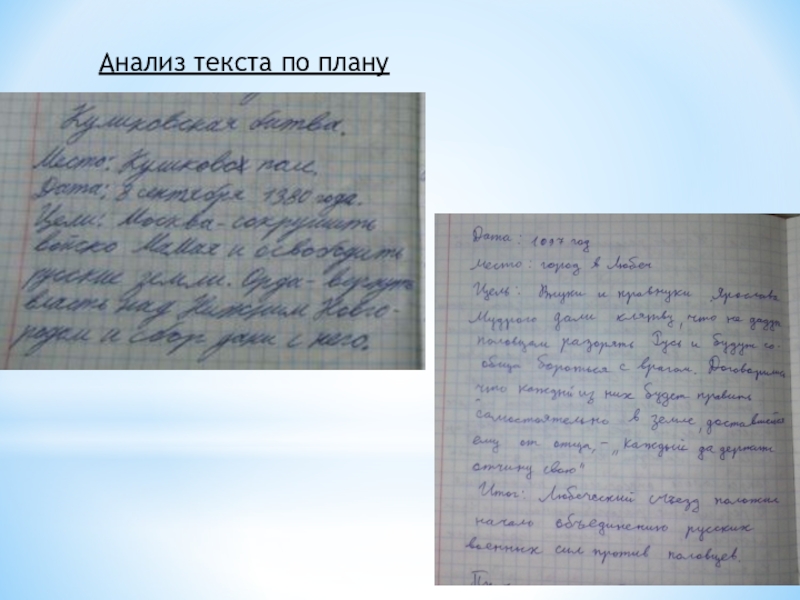 Анализ текста по плану
Куликовская битва.
Место: Куликовох поле.
Дата: 8 сентября 1380 года.
Цели: Москва - сокрушить
войско Мамая и освободить
русские земли. Орда - вернуть
власть над Нижним Новго-
родом и сбор дани с него.
Дата: 1097 год
Место: город в Любеч
Цель: Внуки и правнуки Ярослава
Мудрого дали клятву, что не дадут
половцам разорять Русь и будут со-
обща бороться с врагом. Договорились
что каждый из них будет править
самостоятельно в земле, доставшейся
ему от отца, - "каждый да держит
отчину свою"
Итог: Любеческий съезд положил
начало объединению русских
военных сил против половцев.